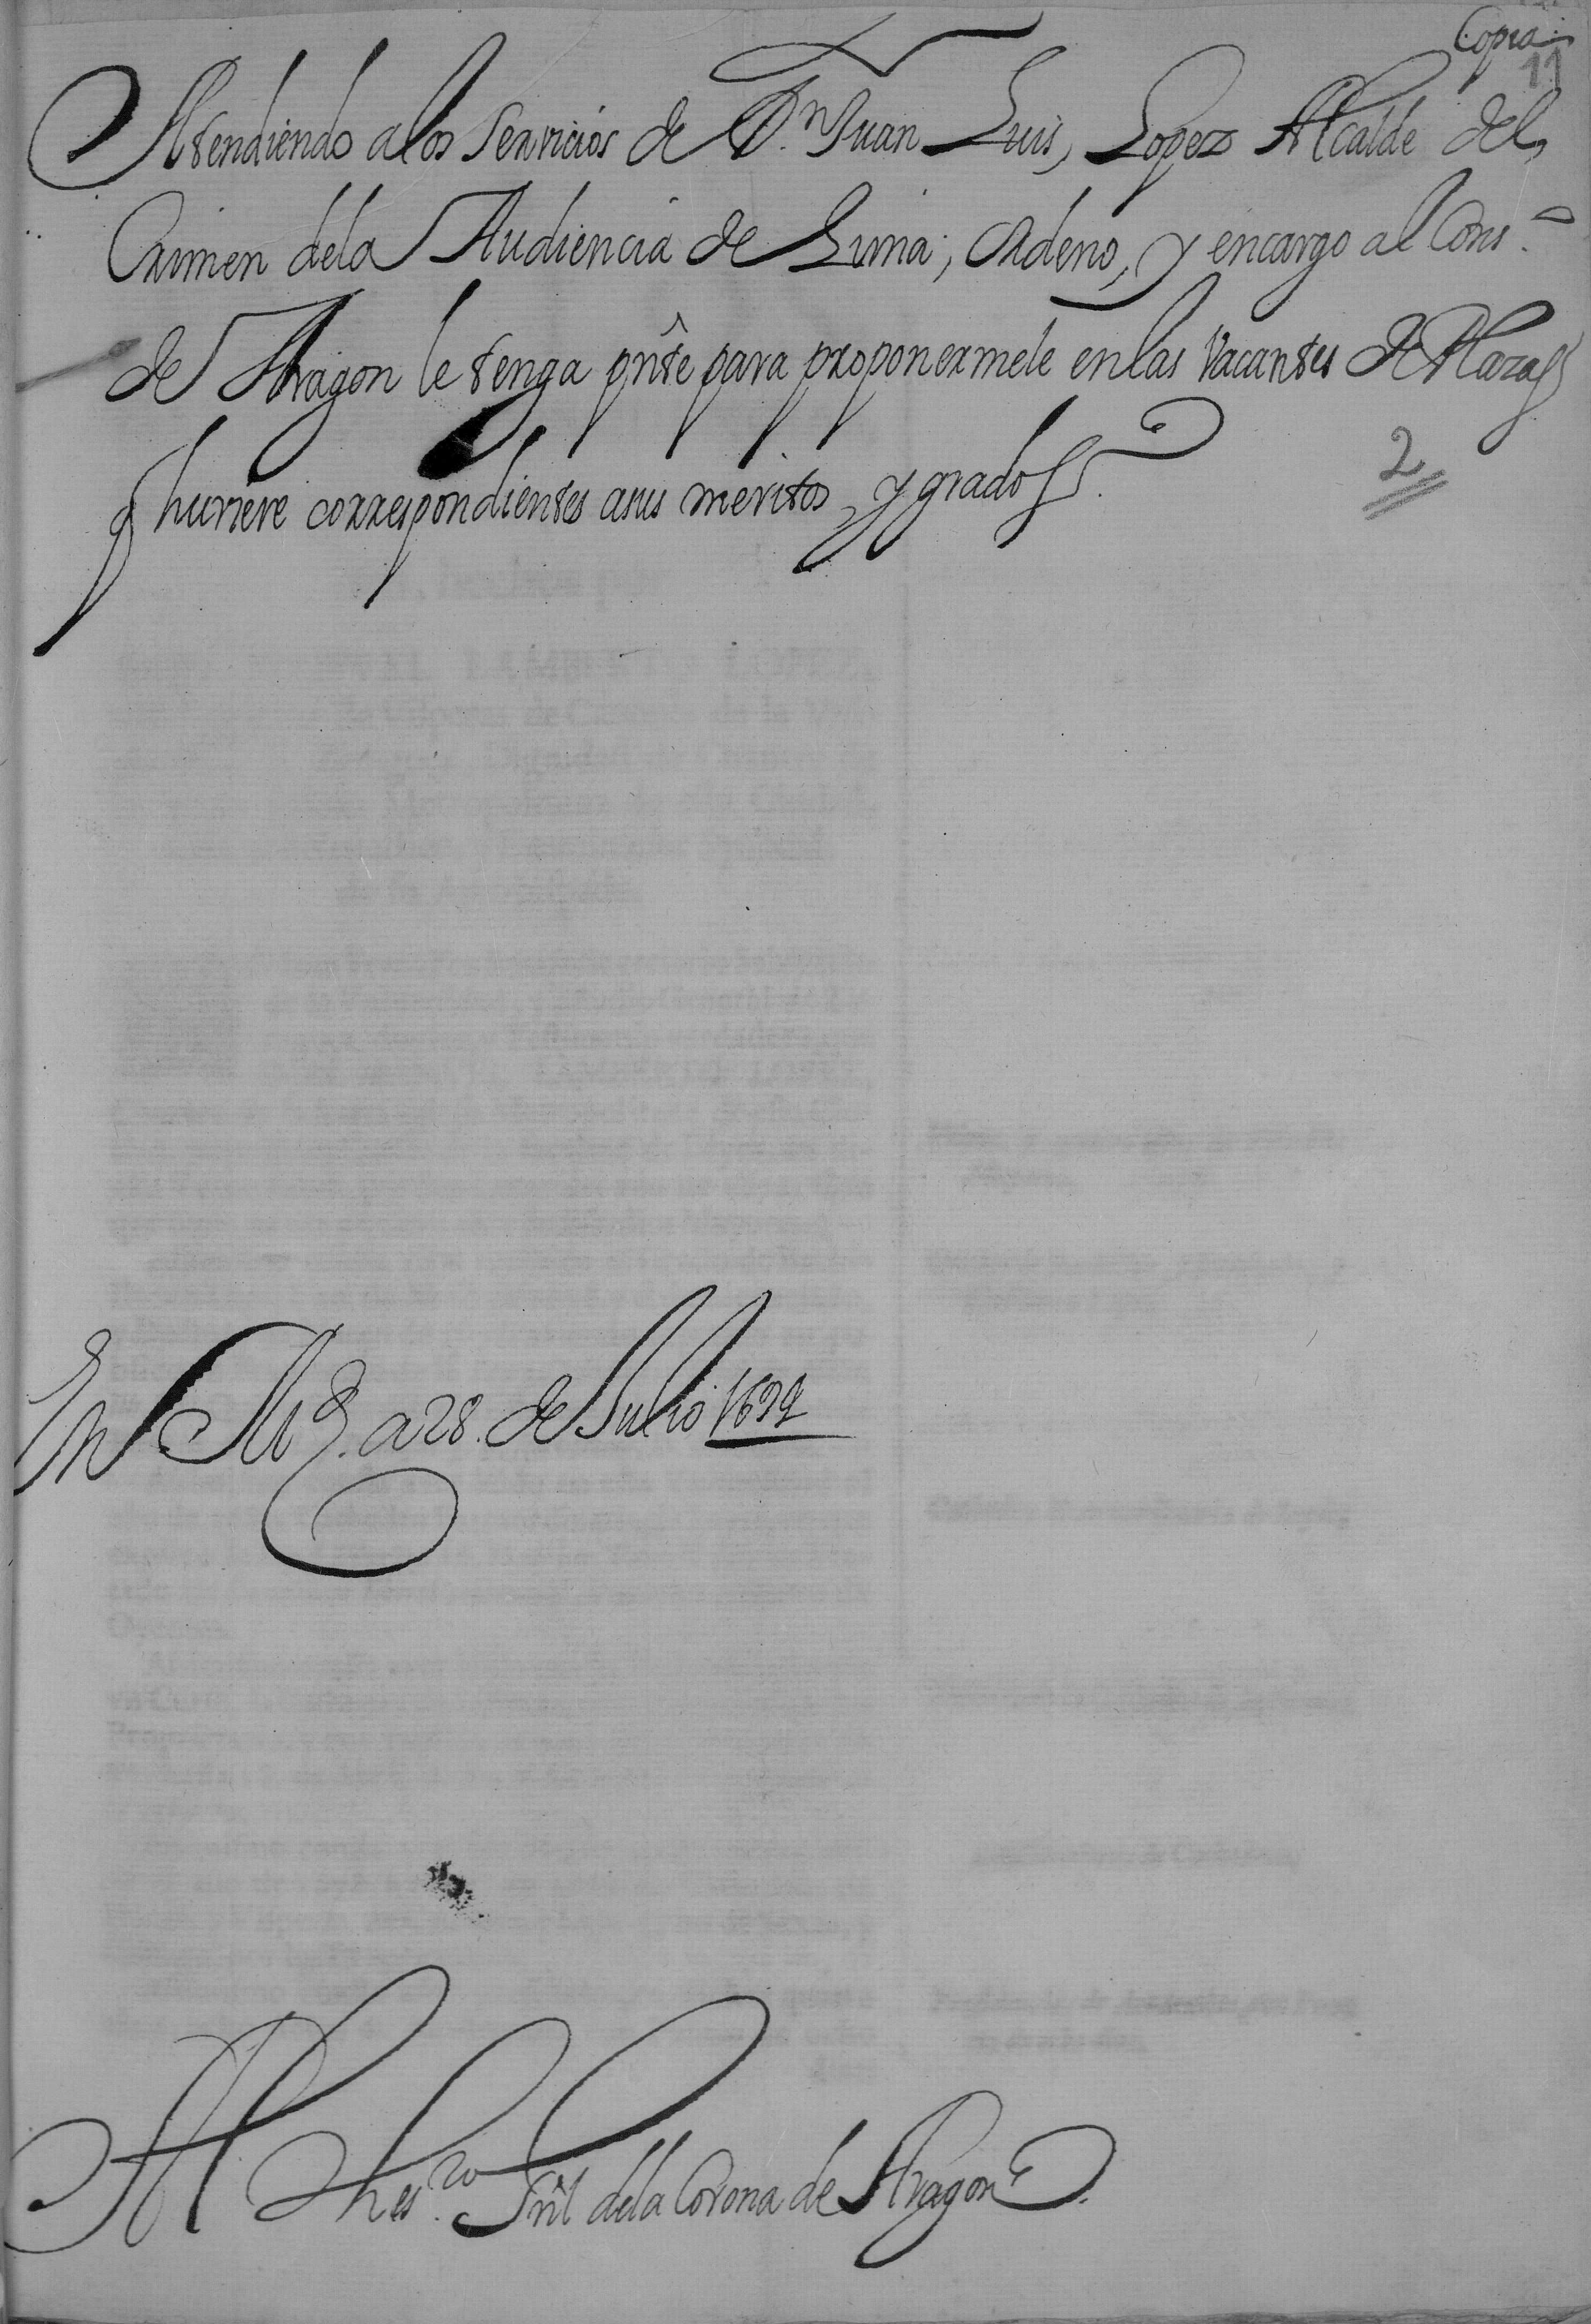 Copia
11
Atendiendo alos Servicios de D.n Juan Luis, Lopez Alcalde del,
Crimen dela Audiencia de Lima; Ordeno, y encargo al Cons.o
de Aragon le tenga pñte para proponermele enlas Vacantes de Plazas
q huviere correspondientes asus meritos, y grados.
2
En M.d a 28. de Julio
Al Thes.ro Gñl dela Corona de Aragon.